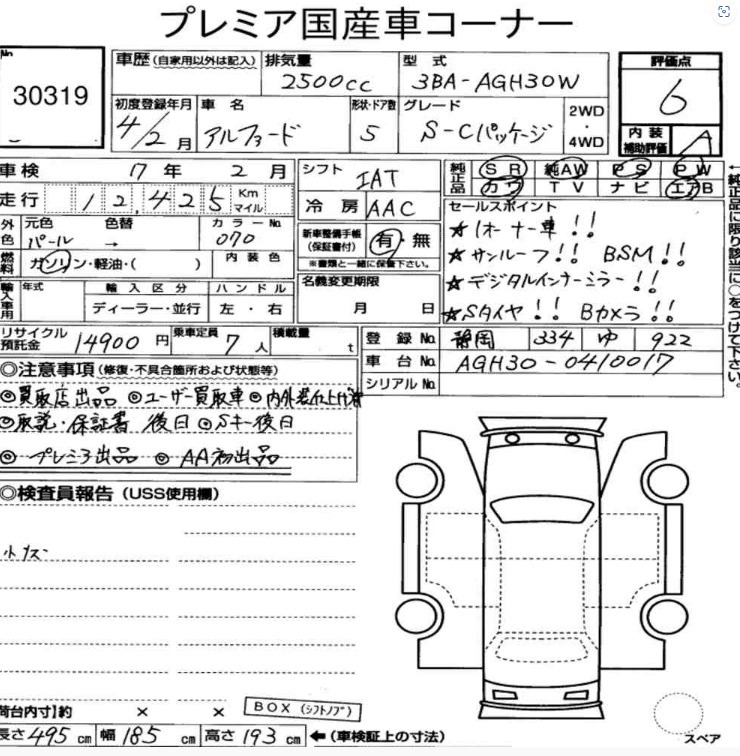 プレミア国産車コーナー
No 30319
車歴 (自家用以外は記入) 排気量 2500cc 型式 3BA-AGH30W 評価点 6
初度登録年月 4/2月 車名 アルファード 形状・ドア数 5 グレード S-Cパッケージ 2WD・4WD 内装補助評価 A
車検 17年 2月 シフト IAT 純正品 SR 純AW PS PW
走行 12,425 Km マイル 冷房 AAC カワ TV ナビ エアB
外色 元色 パール 色替 → カラーNo 070 新車整備手帳(保証書付) 有・無 ※書類と一緒に保管下さい。
セールスポイント
★1オーナー車!!
★サンルーフ!! BSM!!
★デジタルインナーミラー!!
★Sタイヤ!! Bカメラ!!
←純正品に限り該当に○をつけて下さい。
燃料 ガソリン・軽油・( ) 内装色 名義変更期限 月 日
輸入車用 年式 輸入区分 ディーラー・並行 ハンドル 左・右
リサイクル預託金 14900円 乗車定員 7人 積載量 t
登録No. 静岡 334 ゆ 922
車台No. AGH30-0410017
シリアルNo.
◎注意事項(修復・不具合箇所および状態等)
◎買取店出品 ◎ユーザー買取車 ◎内外装仕上げ済
◎取説・保証書 後日 ◎Sキー後日
◎プレミア出品 ◎AA初出品
◎検査員報告(USS使用欄)
小キズ
荷台内寸]約 × ×
BOX(シフトノブ)
長さ495cm 幅185cm 高さ193cm ←(車検証上の寸法)
スペア